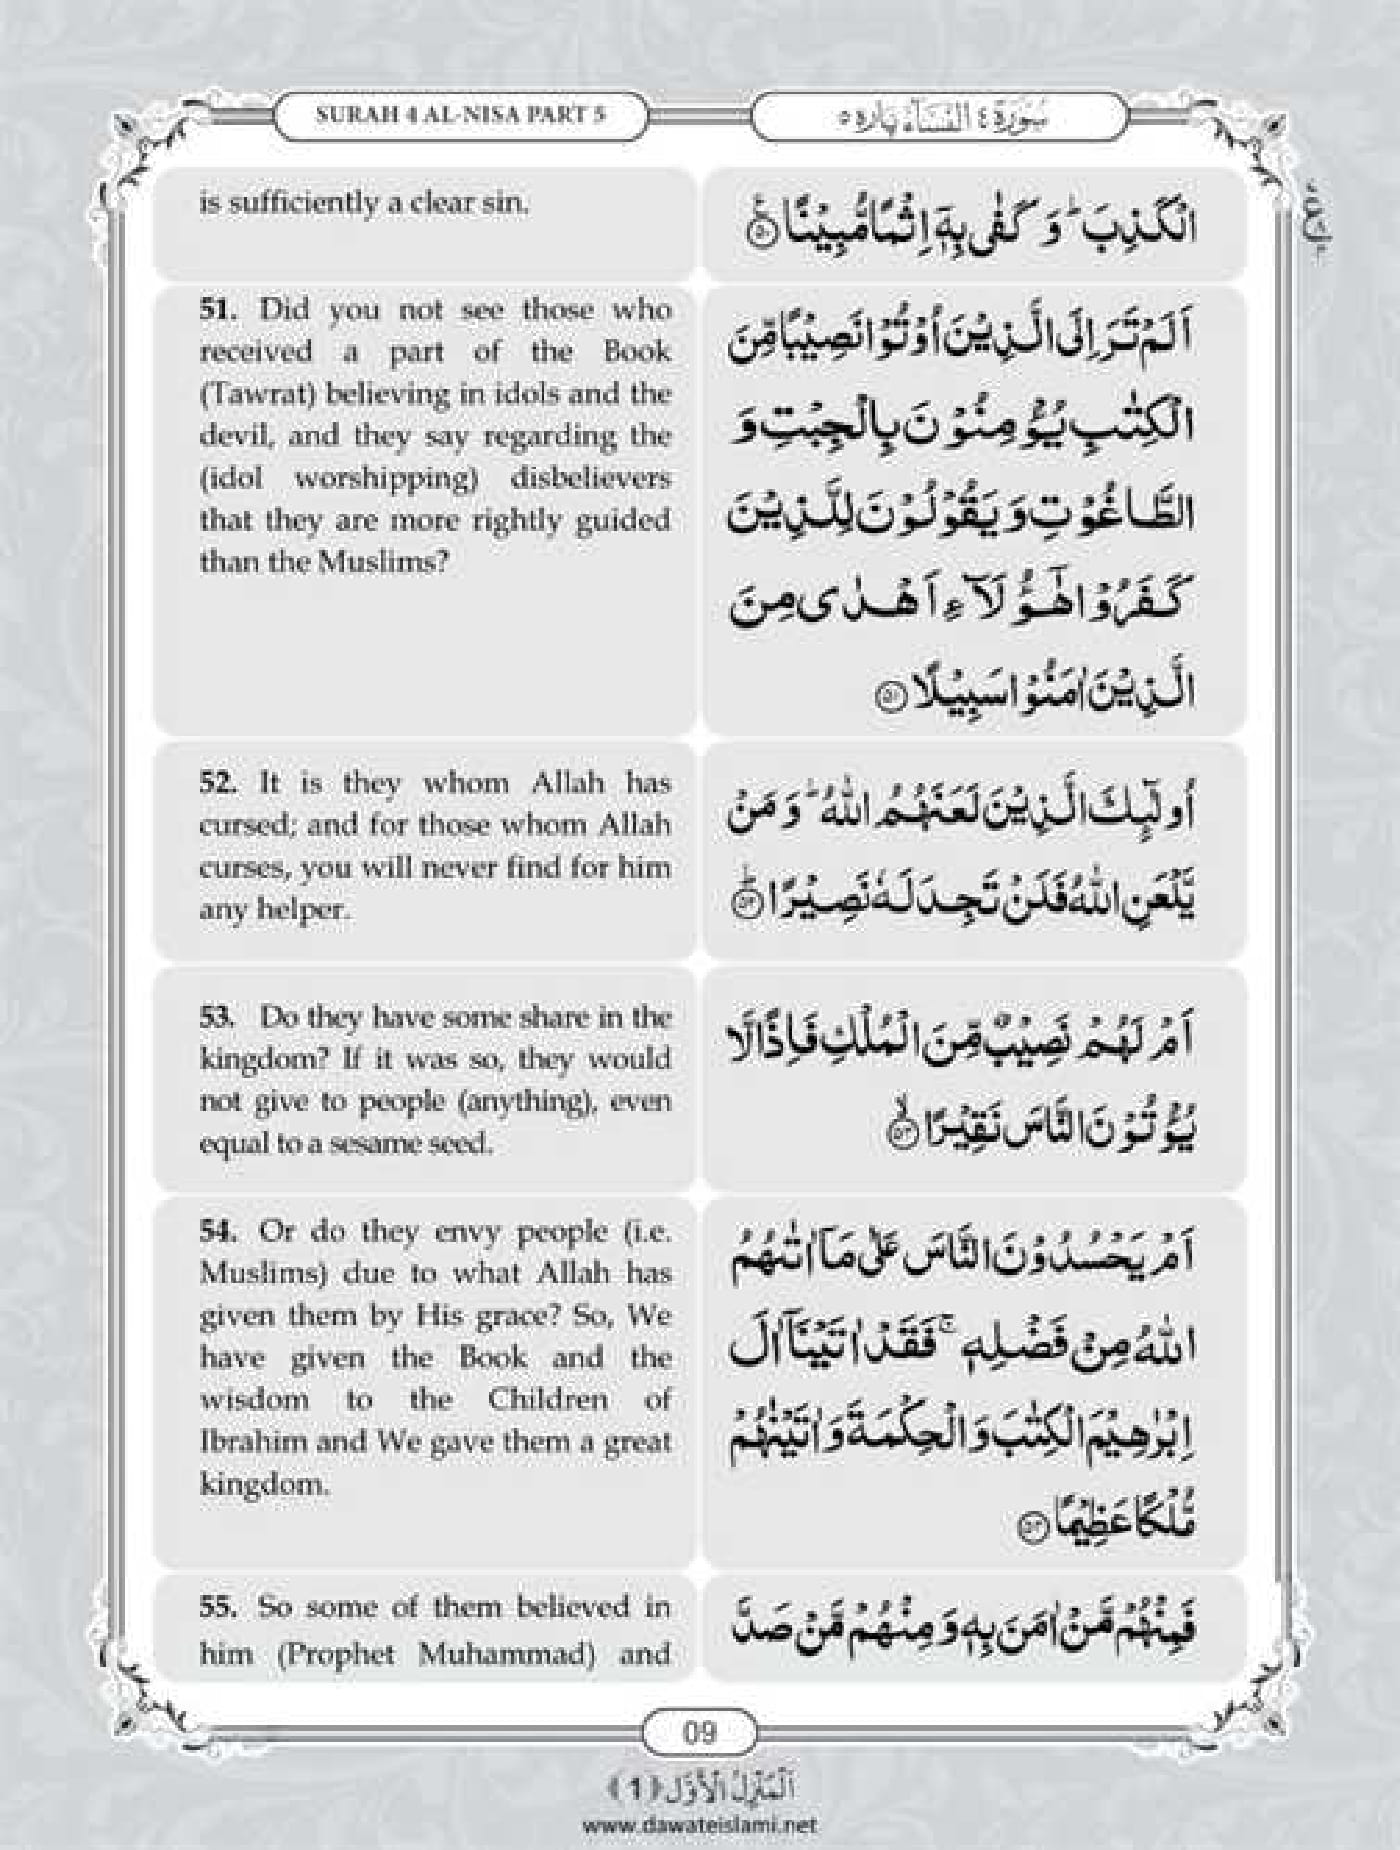 SURAH 4 AL-NISA PART 5
سُوْرَة ٤ النِّسَآء پاره ٥
is sufficiently a clear sin.
الْكَذِبَ ؕ وَ كَفٰى بِهٖۤ اِثْمًا مُّبِیْنًا۠ ﴿۵۰﴾
51. Did you not see those who
received a part of the Book
(Tawrat) believing in idols and the
devil, and they say regarding the
(idol worshipping) disbelievers
that they are more rightly guided
than the Muslims?
اَلَمْ تَرَ اِلَى الَّذِیْنَ اُوْتُوْا نَصِیْبًا مِّنَ
الْكِتٰبِ یُؤْمِنُوْنَ بِالْجِبْتِ وَ
الطَّاغُوْتِ وَ یَقُوْلُوْنَ لِلَّذِیْنَ
كَفَرُوْا هٰۤؤُلَآءِ اَهْدٰى مِنَ
الَّذِیْنَ اٰمَنُوْا سَبِیْلًا ﴿۵۱﴾
52. It is they whom Allah has
cursed; and for those whom Allah
curses, you will never find for him
any helper.
اُولٰٓىِٕكَ الَّذِیْنَ لَعَنَهُمُ اللّٰهُ ؕ وَ مَنْ
یَّلْعَنِ اللّٰهُ فَلَنْ تَجِدَ لَهٗ نَصِیْرًا ؕ ﴿۵۲﴾
53. Do they have some share in the
kingdom? If it was so, they would
not give to people (anything), even
equal to a sesame seed.
اَمْ لَهُمْ نَصِیْبٌ مِّنَ الْمُلْكِ فَاِذًا لَّا
یُؤْتُوْنَ النَّاسَ نَقِیْرًا ۙ ﴿۵۳﴾
54. Or do they envy people (i.e.
Muslims) due to what Allah has
given them by His grace? So, We
have given the Book and the
wisdom to the Children of
Ibrahim and We gave them a great
kingdom.
اَمْ یَحْسُدُوْنَ النَّاسَ عَلٰى مَاۤ اٰتٰىهُمُ
اللّٰهُ مِنْ فَضْلِهٖ ۚ فَقَدْ اٰتَیْنَاۤ اٰلَ
اِبْرٰهِیْمَ الْكِتٰبَ وَ الْحِكْمَةَ وَ اٰتَیْنٰهُمْ
مُّلْكًا عَظِیْمًا ﴿۵۴﴾
55. So some of them believed in
him (Prophet Muhammad) and
فَمِنْهُمْ مَّنْ اٰمَنَ بِهٖ وَ مِنْهُمْ مَّنْ صَدَّ
09
اَلْمَنْزِلُ الْاَوَّل ﴿1﴾
www.dawateislami.net